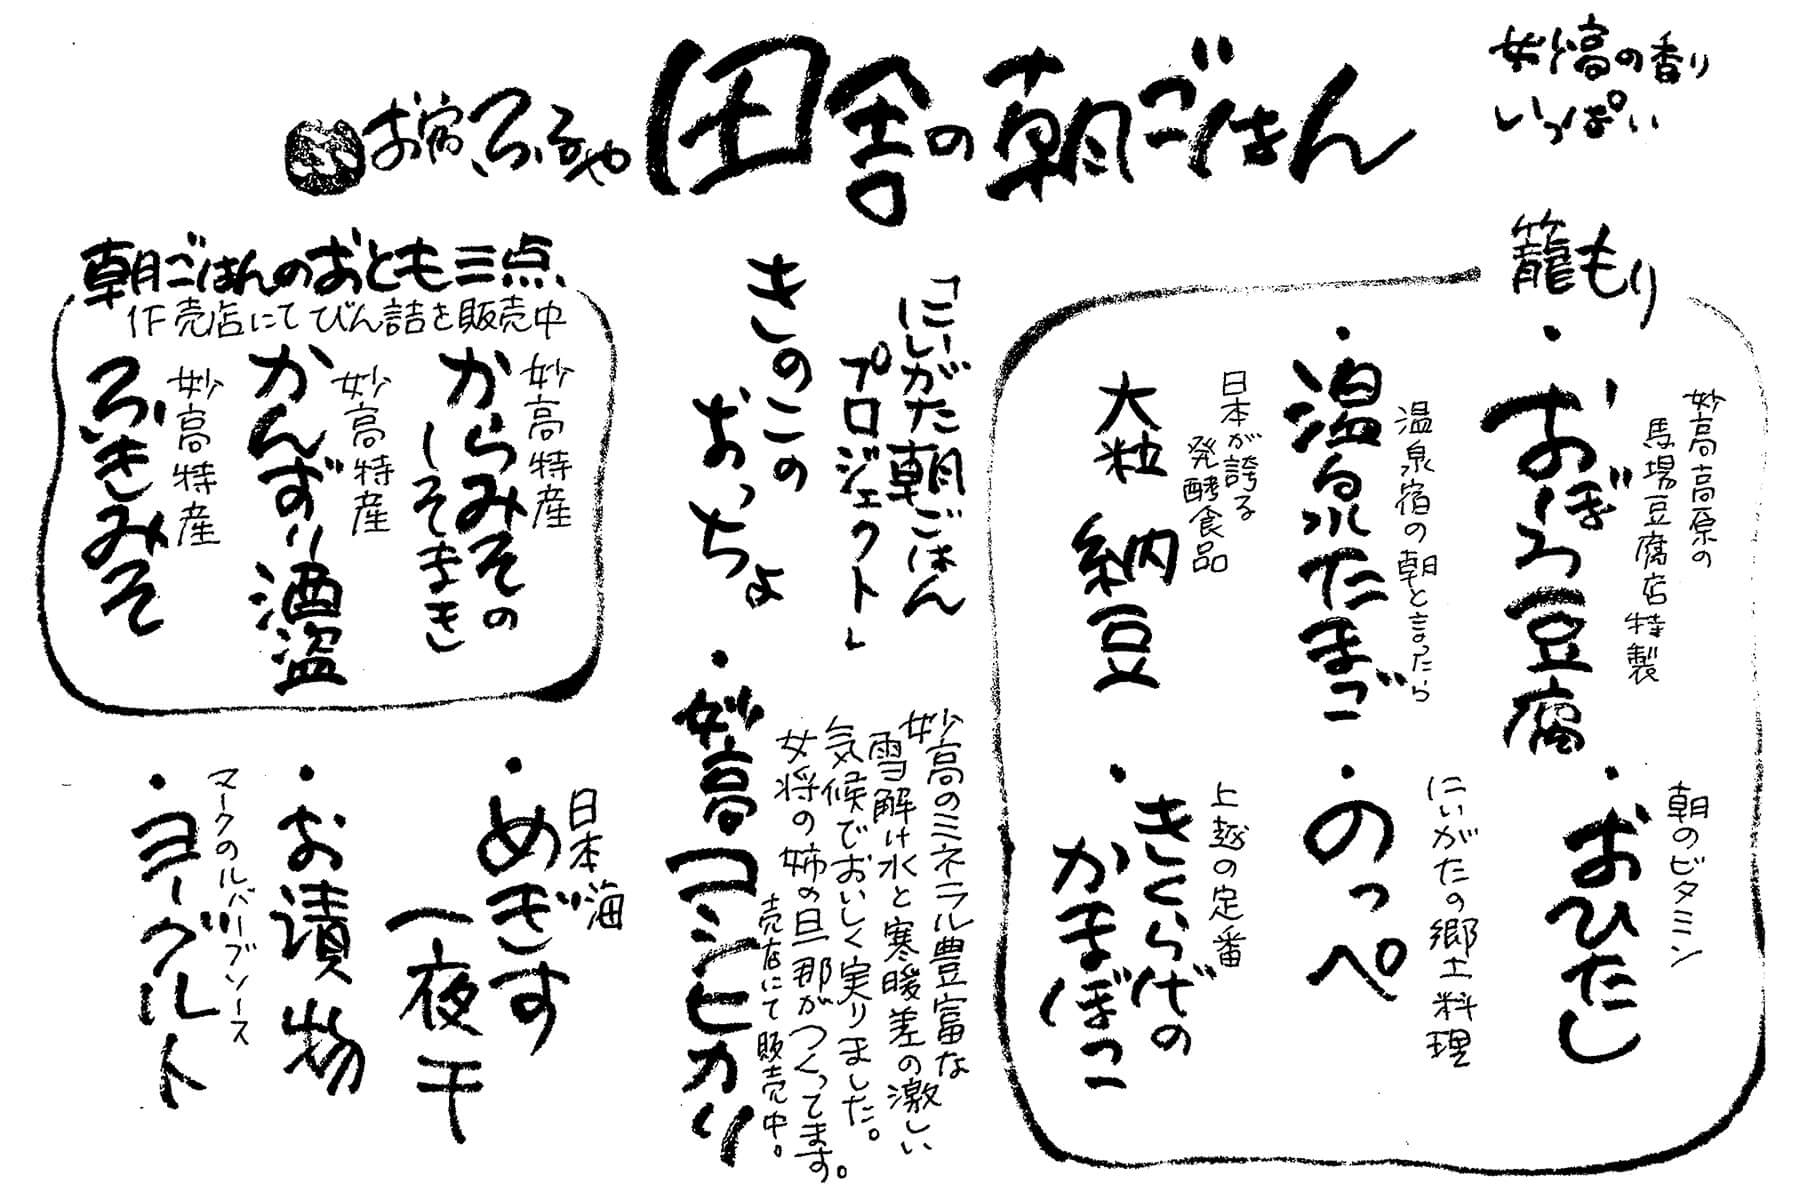 妙高の香り
いっぱい
お宿ふる や
田舎の朝ごはん
籠もり
妙高高原の
馬場豆腐店特製
・おぼろ豆腐
温泉宿の朝と言ったら
・温泉たまご
日本が誇る
発酵食品
大粒 納豆
朝のビタミン
・おひたし
にいがたの郷土料理
・のっぺ
上越の定番
・きくらげの
かまぼこ
「にいがた朝ごはん
プロジェクト」
きのこの
おっちょ
妙高のミネラル豊富な
雪解け水と寒暖差の激しい
気候でおいしく実りました。
女将の姉の旦那がつくってます。
売店にて販売中。
・妙高コシヒカリ
朝ごはんのおとも三点、
売店にてびん詰を販売中
妙高特産
からみその
しそまき
妙高特産
かんずり酒盗
妙高特産
ふきみそ
日本海
・めぎす
一夜干
・お漬物
マークのルバーブソース
・ヨーグルト